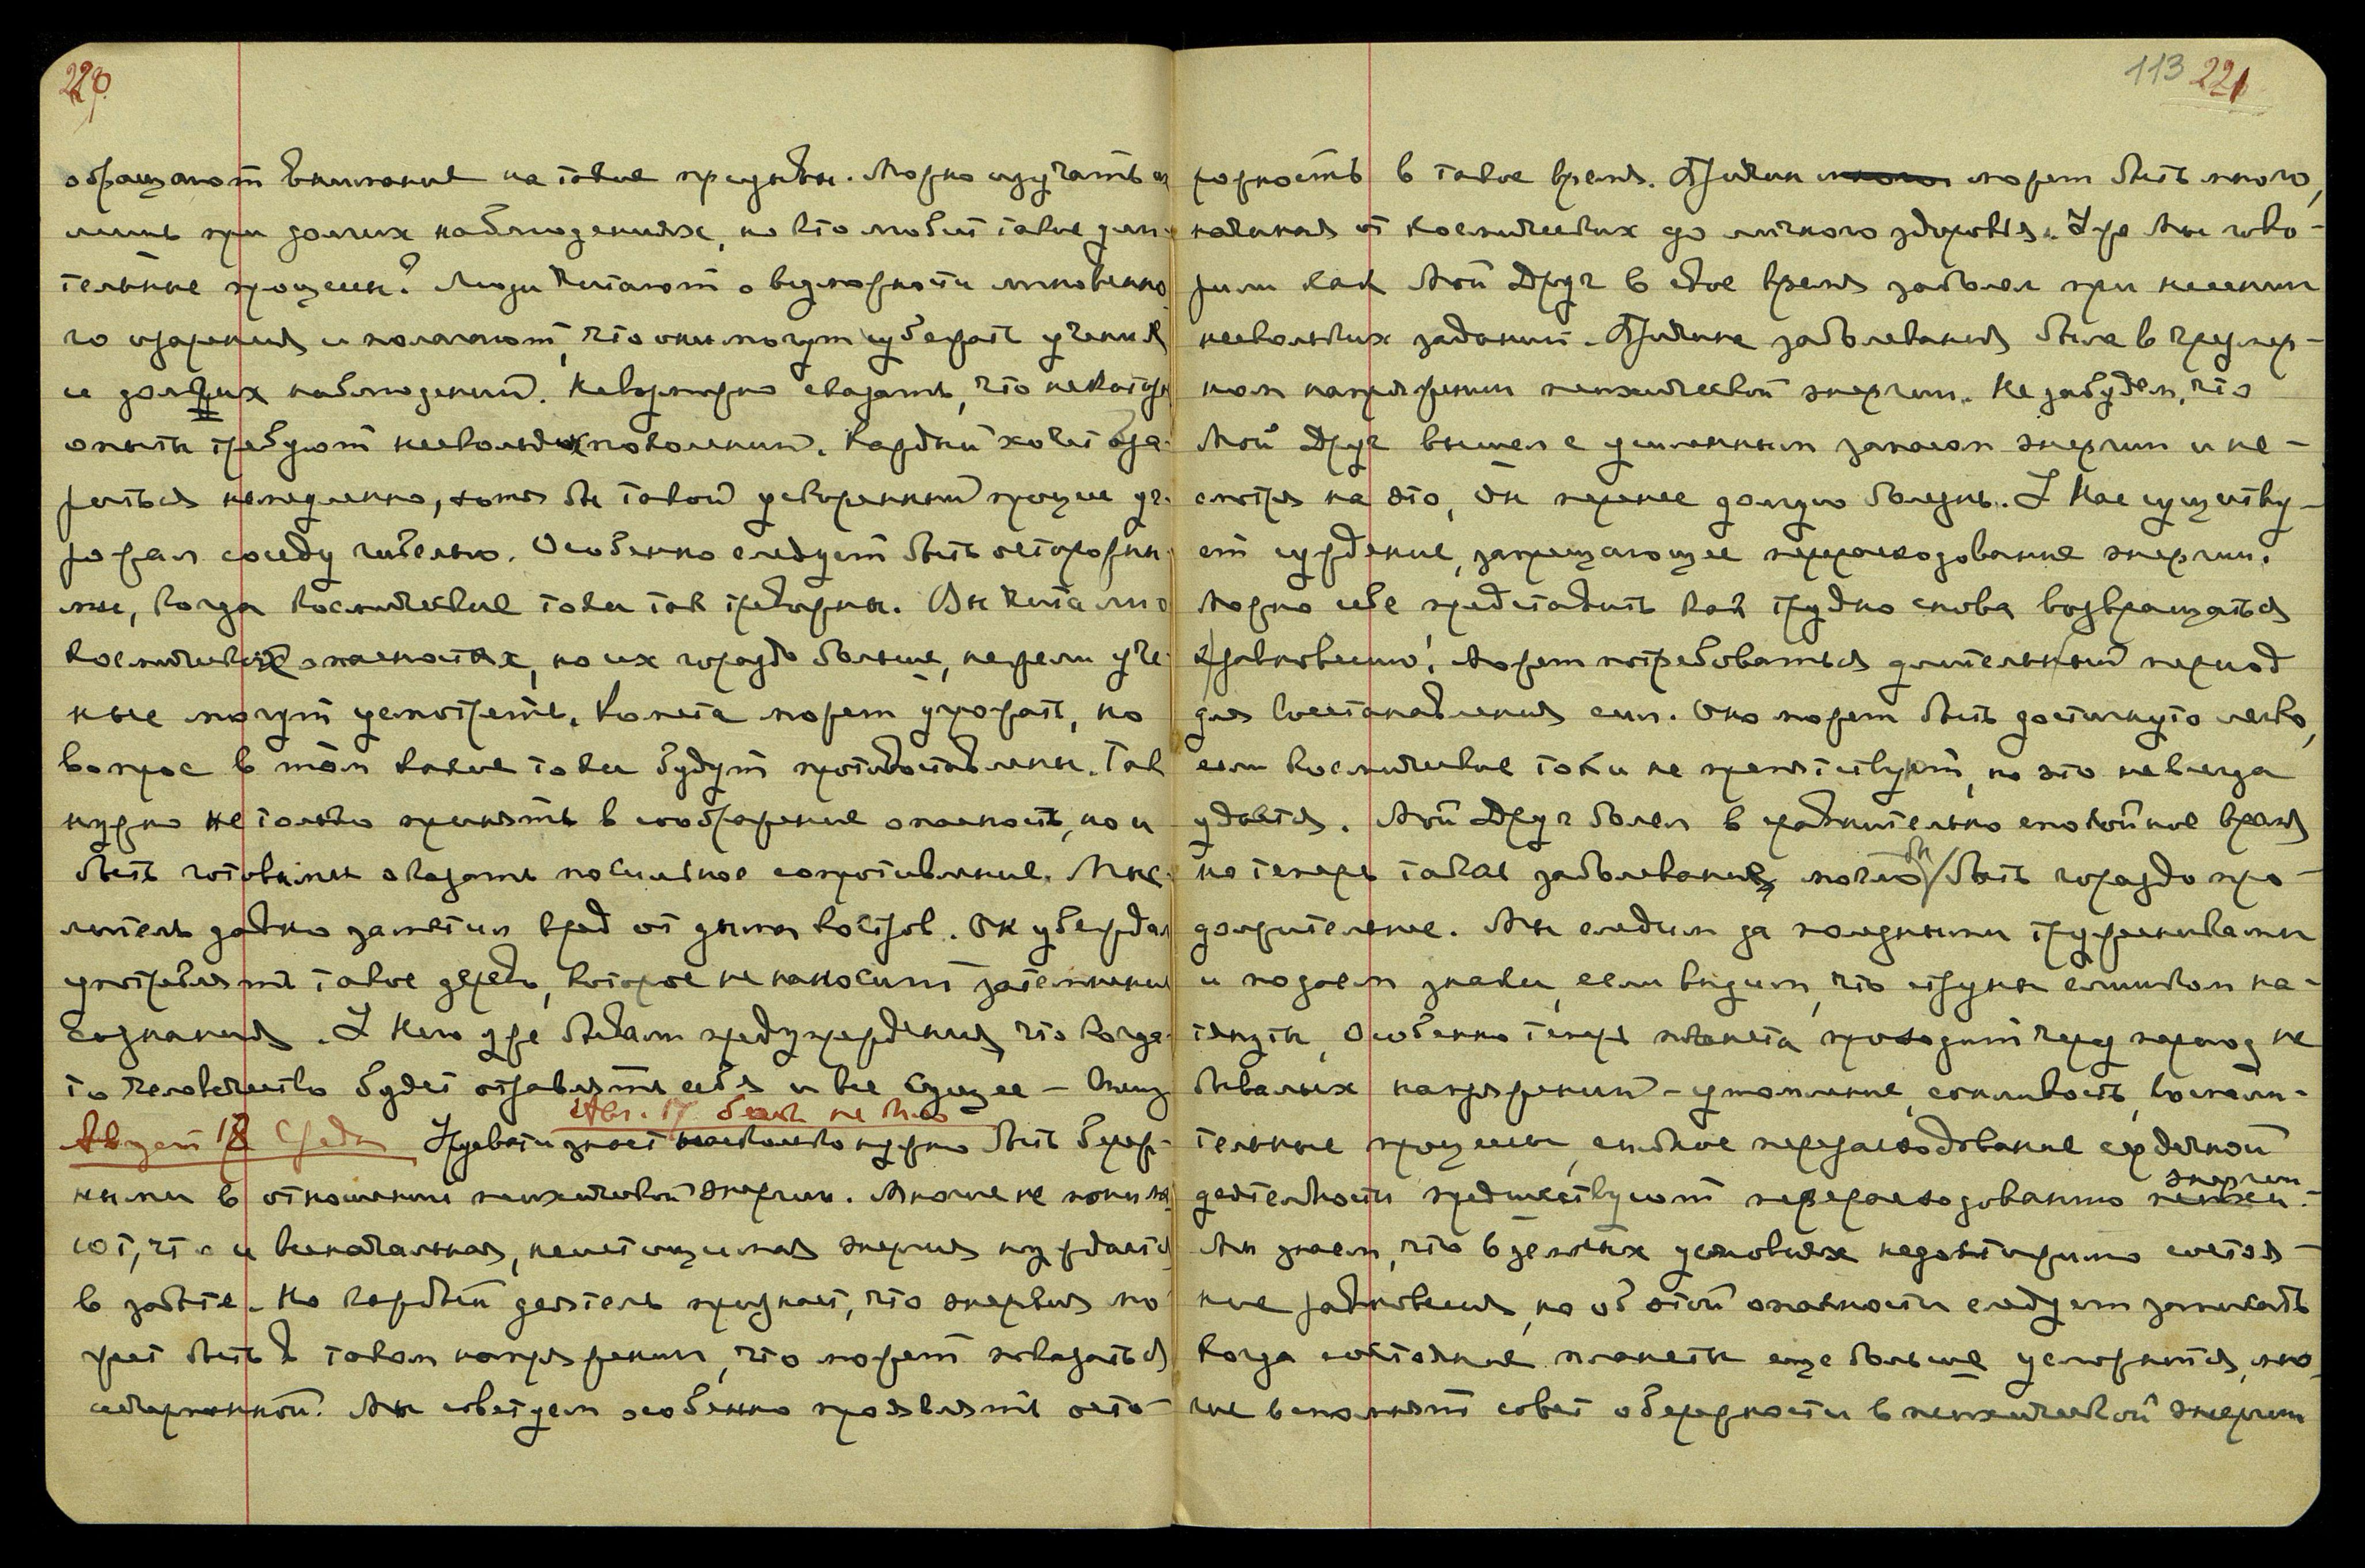 220
обращают внимание на такие призывы. Можно изучать их
лишь при долгих наблюдениях, но кто любит такие дли-
тельные процессы? Люди читают о возможности мгновенно-
го озарения и полагают, что они могут избежать учения
и долгих наблюдений. Невозможно сказать, что некоторые
опыты требуют нескольких поколений. Каждый хочет оза-
риться немедленно, хотя бы такой ускоренный процесс уг-
рожал соседу гибелью. Особенно следует быть осторожны-
ми, когда космические токи так тревожны. Вы читали о
космических опасностях, но их гораздо больше, нежели уче-
ные могут усмотреть. Комета может угрожать, но
вопрос в том какие токи будут противоставлены. Так
нужно не только принять в соображение опасность, но и
быть готовыми оказать посильное сопротивление. Мыс-
литель давно заметил вред от дыма костров. Он убеждал
употреблять такое дерево, которое не наносит затемнения
сознания. У Него уже бывали предупреждения, что когда-
то человечество будет отравлять себя и все Сущее —
Авг. 17 беседы не было
Август 18 Среда Урусвати знает насколько нужно быть береж-
ными в отношении психической энергии. Многие не понима-
ют, что и всеначальная, неистощимая энергия нуждается
в заботе. Но каждый деятель признает, что энергия мо-
жет быть в таком напряжении, что может показаться
исчерпанной. Мы советуем особенно проявлять осто-
113 221
рожность в такое время. Причин может быть много,
начиная от космических до личного здоровья. Уже Мы гово-
рили как Мой Друг в свое время заболел при несении
нескольких заданий. Причина заболевания была в чрезмер-
ном напряжении психической энергии. Не забудем, что
Мой Друг вышел с усиленным запасом энергии и не-
смотря на это, Он перенес долгую болезнь. У Нас существу-
ет суждение, запрещающее перерасходование энергии.
Можно себе представить как трудно снова возвращаться
к равновесию! Может потребоваться длительный период
для восстановления сил. Оно может быть достигнуто легко,
если космические токи не препятствуют, но это не всегда
удается. Мой Друг болел в сравнительно спокойное время
но теперь такое заболевание могло бы быть гораздо про-
должительнее. Мы следим за полезными тружениками
и подаем знаки, если видим, что струны слишком на-
тянуты. Особенно теперь планета проходит через период не
бывалых напряжений — утомление, сонливость, воспали-
тельные процессы, сильное перерасходование сердечной
деятельности предшествуют перерасходованию психи. энергии
Мы знаем, что в земных условиях недостижимо состоя-
ние равновесия, но об этой опасности следует запомнить
когда состояние планеты еще больше усложнится, мно-
гие вспомнят совет о бережности в психической энергии